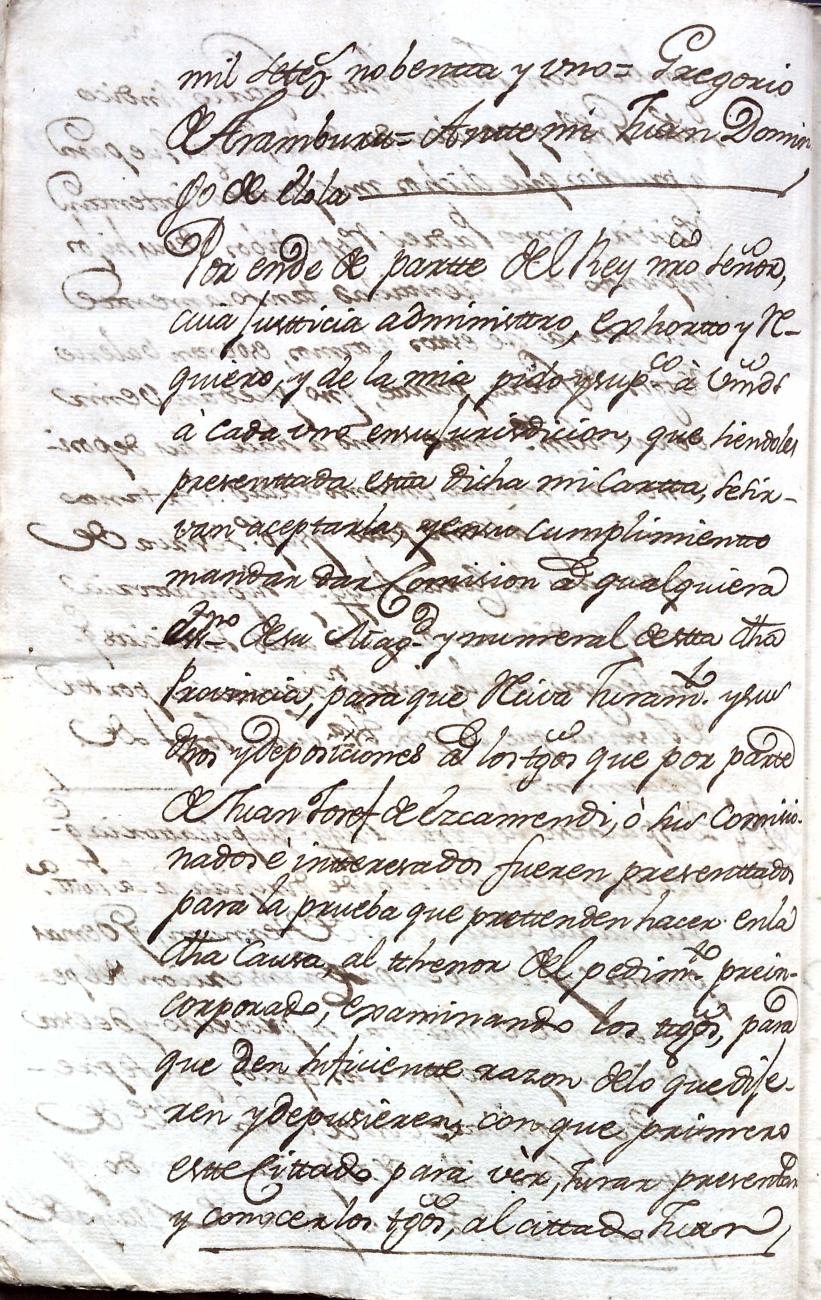 mil setez.s nobentta y vno = Gregorio
de Aramburu = Antte mi Juan Domin
go de Elola
Por ende de partte del Rey nro señor,
cuia Justticia administtro, exhortto y Re-
quiero, y de la mia, pido y sup.co à vmds
à cada vno en su Jurisdicion, que siendoles
presenttada estta dicha mi Cartta, se sir-
van aceptarla, y en su cumplimientto
mandar dar Comision à qualquiera
Ess.no de su Mag.d y numeral de estta dha
Provincia, para que Reciva Juram.to y sus
dhos y deposiciones à los tgos que por parte
de Juan Josef de Ezcamendi, ò sus comisio-
nados è intteresados fueren presenttados
para la prueba que prettenden hacer en la
dha Causa, al tthenor del pedim.to prein-
corporado, examinando los ttgos, para
que den suficientte razon de lo que dije-
ren y depusieren, con que primero
estte Cittado para vèr, Jurar presentar
y conocer los tgos, al cittado Juan